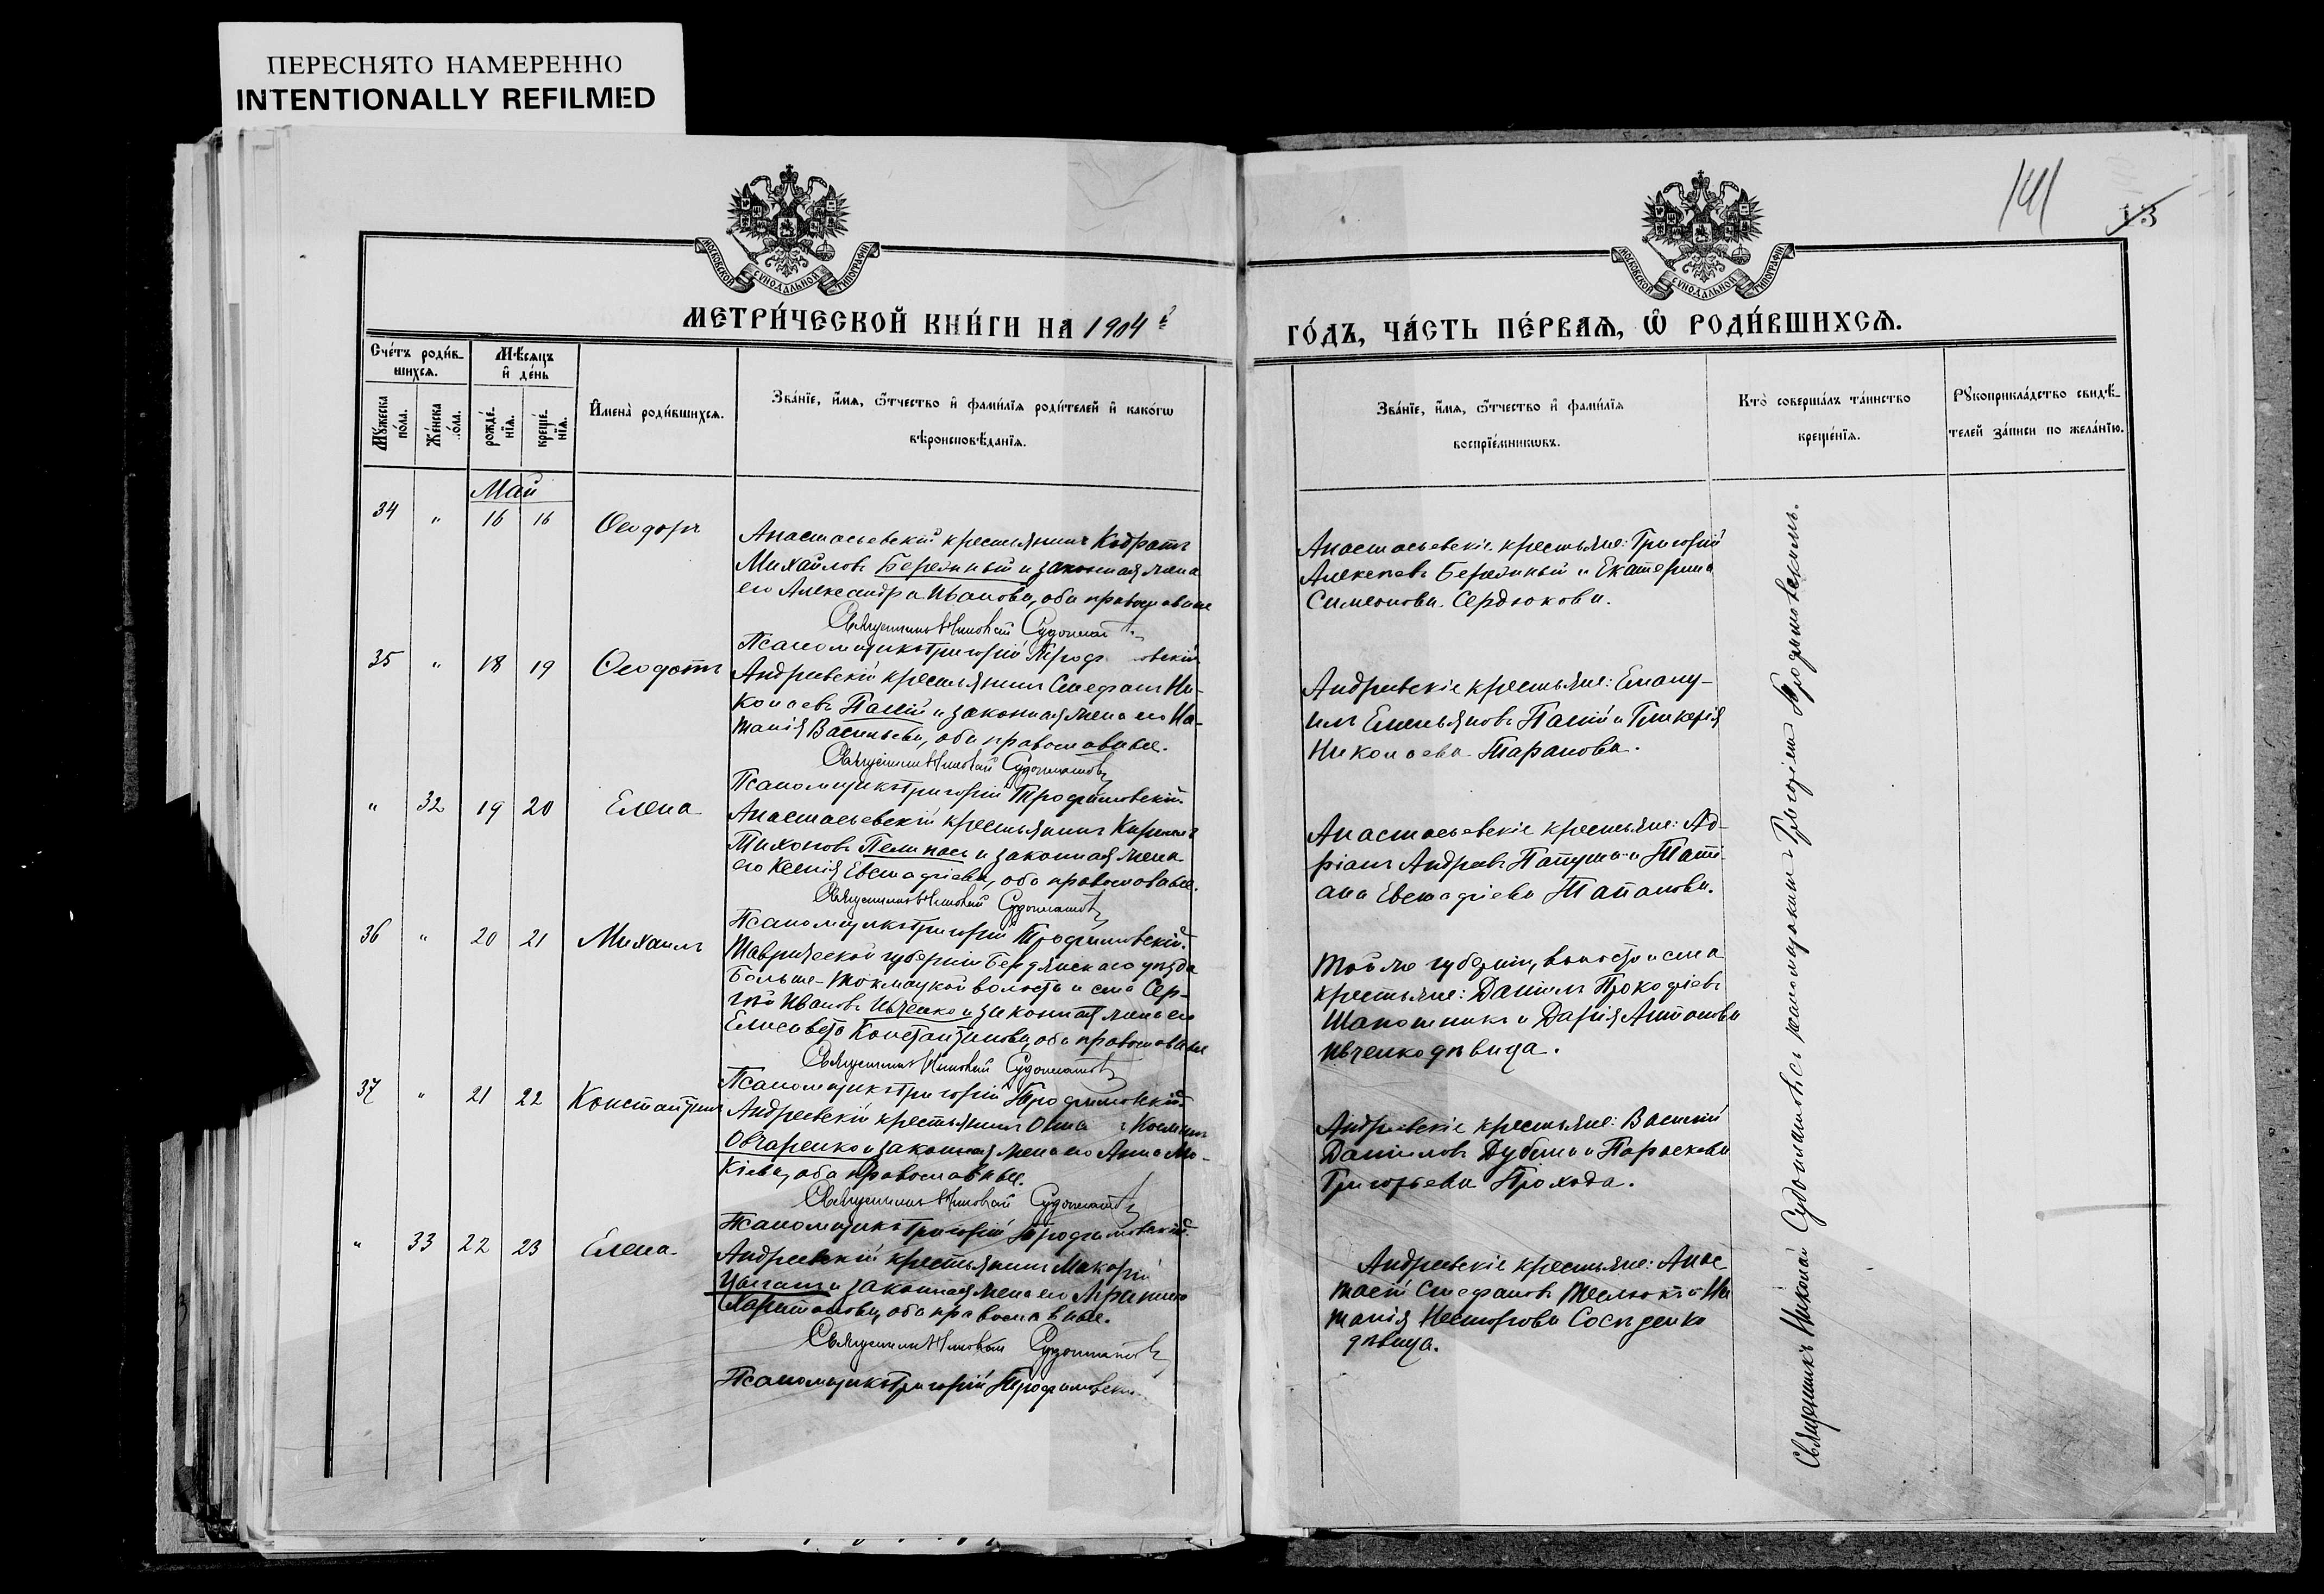 ПЕРЕСНЯТО НАМЕРЕННО
INTENTIONALLY REFILMED
141
13
МОСКОВСКОЙ СѴНОДАЛЬНОЙ ТИПОГРАФІИ
МОСКОВСКОЙ СѴНОДАЛЬНОЙ ТИПОГРАФІИ
МЕТРИ́ЧЕСКОЙ КНИ́ГИ НА 1904й
ГО́ДЪ, ЧА́СТЬ ПЕ́РВАѦ, Ѡ РОДИ́ВШИХСѦ.
Сче́тъ роди́в-
шихсѧ.
Мѣ́сѧцъ
и де́нь
Му́жеска
по́ла.
Же́нска
по́ла.
рожде́-
нїѧ.
креще́-
нїѧ.
Имена̀ роди́вшихсѧ.
Зва́нїе, и́мѧ, ѻ́тчество и фами́лїѧ роди́телей и како́гѡ
вѣроисповѣ́данїѧ.
Зва́нїе, и́мѧ, ѻ́тчество и фами́лїѧ
воспрїе́мникѡвъ.
Кто̀ соверша́лъ та́инство
креще́нїѧ.
Рꙋкоприкла́дство свидѣ́-
телей за́писи по жела́нїю.
Май
34 " 16 16 Ѳеодоръ
Анастасьевскій крестьянинъ Кодратъ
Михайловъ Бережный и законная жена
его Александра Иванова, оба православные
Священникъ Николай
Псаломщикъ Григорій
Анастасьевскіе крестьяне: Григорій
Алексеевъ Бережный и Екатерина
Симеонова Сердюкова.
35 " 18 19 Ѳеодотъ
Андреевскій крестьянинъ Стефанъ Ни-
колаевъ Палій и законная жена его На-
талія Васильева, оба православные.
Священникъ Николай Судоплатовъ
Псаломщикъ Григорій Трофимовскій.
Андреевскіе крестьяне: Еману-
илъ Емельяновъ Палій и Гликерія
Николаева Таранова.
" 32 19 20 Елена
Анастасьевскій крестьянинъ Кириллъ
Тихоновъ и законная жена
его Ксенія Евстафіева, оба православные.
Священникъ Николай Судоплатовъ
Псаломщикъ Григорій Трофимовскій.
Анастасьевскіе крестьяне: Ад-
ріанъ Андреевъ и Тати-
ана Евстафіева
36 " 20 21 Михаилъ
Таврической губерніи Бердянскаго уѣзда
Больше-Токмацкой волости и села Сер-
гѣй Ивановъ Ивченко и законная жена его
Елисавета Константинова, оба православные
Священникъ Николай Судоплатовъ
Псаломщикъ Григорій Трофимовскій.
Той же губерніи, волости и села
крестьяне: Даніилъ Прокофіевъ
Шапошникъ и Дарія Антонова
Ивченко дѣвица.
37 " 21 22 Константинъ
Андреевскій крестьянинъ Косминъ
Овчаренко и законная жена его Анна Мо-
кіева, оба православные.
Священникъ Николай Судоплатовъ
Псаломщикъ Григорій Трофимовскій.
Андреевскіе крестьяне: Василій
Даниловъ и Параскева
Григорьева Прохода.
" 33 22 23 Елена
Андреевскій крестьянинъ Макарій
и законная жена его
Харитонова, оба православные.
Священникъ Николай Судоплатовъ
Псаломщикъ Григорій Трофимовскій
Андреевскіе крестьяне: Анас-
тасій Стефановъ и На-
талія Несторова
дѣвица.
Священникъ Николай Судоплатовъ съ псаломщикомъ Григоріемъ Трофимовскимъ.